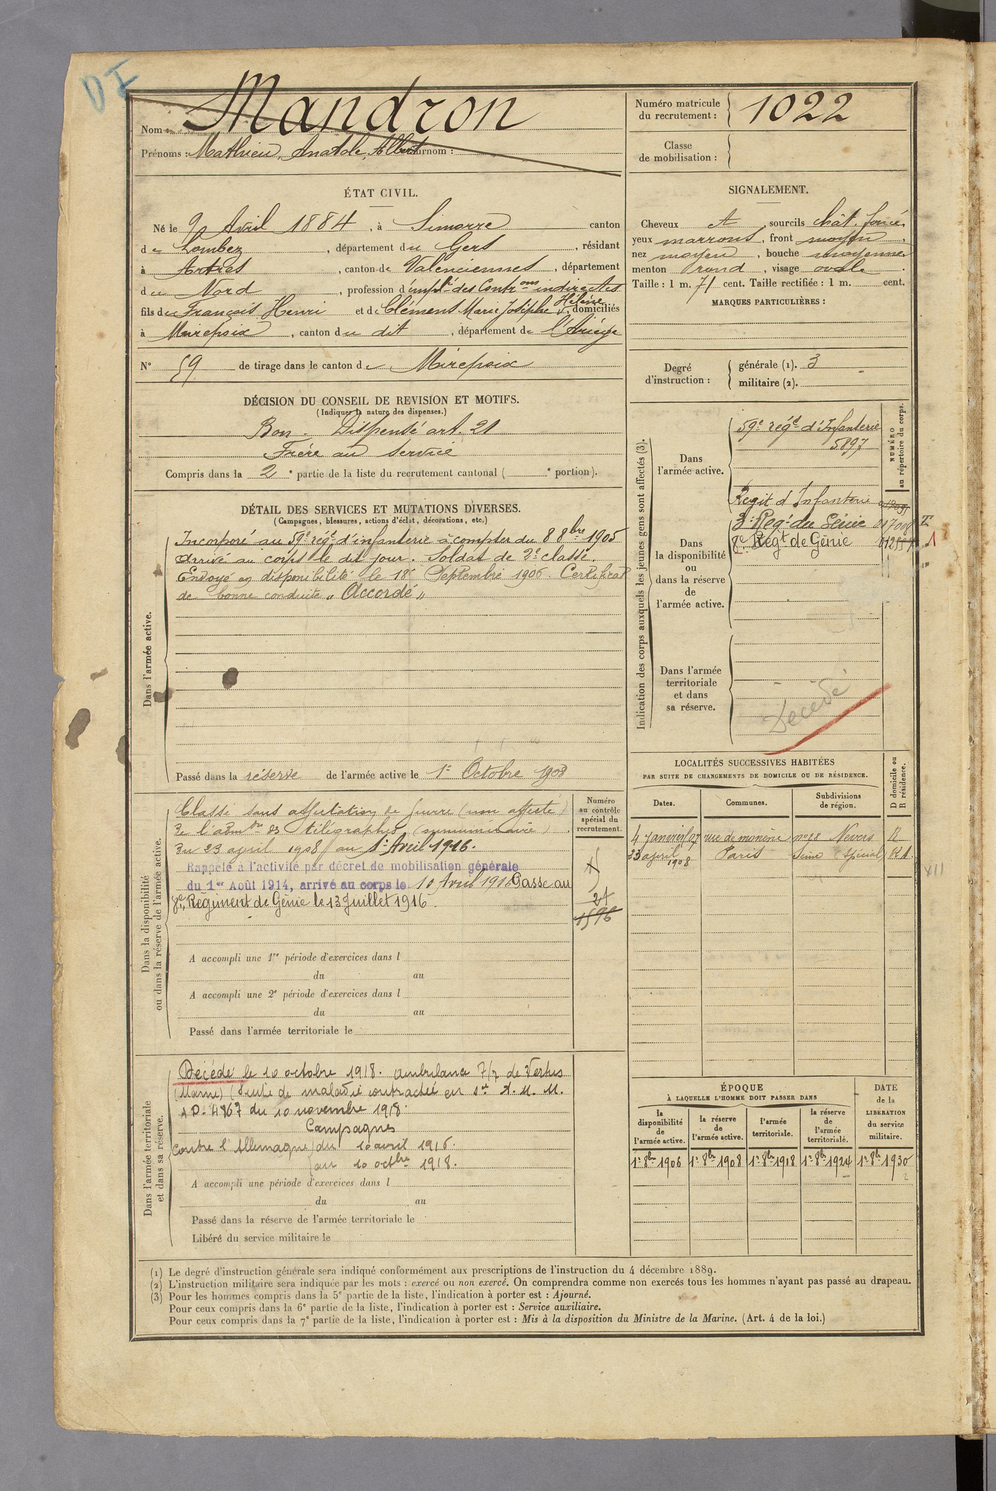 DI
Nom : Mandron
Prénoms : Mathieu, Anatole, Albert Surnom :
Numéro matricule
du recrutement : 1022
Classe
de mobilisation :
ÉTAT CIVIL.
Né le 9 Avril 1884, à Simorre canton
de Lombez, département du Gers, résidant
à Artres, canton de Valenciennes, département
du Nord, profession d'empl. des Contr.ons indirectes
fils de François Henri et de Clémens Marie Josèphe Hélène, domiciliés
à Mirepoix, canton du dit, département de l'Ariège
N° 59 de tirage dans le canton de Mirepoix
SIGNALEMENT.
Cheveux et, sourcils chât. foncé,
yeux marrons, front moyen,
nez moyen, bouche moyenne
menton rond, visage ovale.
Taille : 1 m. 71 cent. Taille rectifiée : 1 m. cent.
MARQUES PARTICULIÈRES :
Degré
d'instruction :
générale (1). 3
militaire (2).
DÉCISION DU CONSEIL DE REVISION ET MOTIFS.
(Indiquer la nature des dispenses.)
Bon. Dispensé art. 21
Frère au service
Compris dans la 2e partie de la liste du recrutement cantonal ( e portion).
DÉTAIL DES SERVICES ET MUTATIONS DIVERSES.
(Campagnes, blessures, actions d'éclat, décorations, etc.)
Dans l'armée active.
Incorporé au 59e rég. d'infanterie à compter du 8 8bre 1905
Arrivé au corps le dit jour. Soldat de 2e classe.
Envoyé en disponibilité le 18 Septembre 1906. Certificat
de bonne conduite "Accordé"
Passé dans la réserve de l'armée active le 1er Octobre 1908
Indication des corps auxquels les jeunes gens sont affectés (3).
NUMÉRO
au répertoire du corps.
Dans
l'armée active.
59e rég.t d'Infanterie
5897
Dans
la disponibilité
ou
dans la réserve
de
l'armée active.
Régit d'Infanterie
3e Rég.t du Génie
8e Régt de Génie
Dans l'armée
territoriale
et dans
sa réserve.
Décédé
LOCALITÉS SUCCESSIVES HABITÉES
PAR SUITE DE CHANGEMENTS DE DOMICILE OU DE RÉSIDENCE.
D domicile ou
R résidence.
Dates.
Communes.
Subdivisions
de région.
4 janvier 07 rue de Nevers R
23 avril 1908 Paris Seine R.A
XII
Dans la disponibilité
ou dans la réserve de l'armée active.
Numéro
au contrôle
spécial du
recrutement.
Classé sans affectation de guerre (non affecté)
de l'adm.on des télégraphes
du 23 avril 1908 au 1er Avril 1916.
Rappelé à l'activité par décret de mobilisation générale
du 1er Août 1914, arrivé au corps le 10 Avril 1916 Passé au
8e Régiment de Génie le 13 Juillet 1916.
A accompli une 1re période d'exercices dans l
du au
A accompli une 2e période d'exercices dans l
du au
Passé dans l'armée territoriale le
Dans l'armée territoriale
et dans sa réserve.
Décédé le 10 octobre 1918. ambulance 7/7 de Vertus
(Marne) (Suite de maladie contractée en s.ce A. M. M.
A D- 4867 du 10 novembre 1918.
Campagnes
Contre l'Allemagne du 10 avril 1916.
au 10 octbre 1918.
A accompli une période d'exercices dans l
du au
Passé dans la réserve de l'armée territoriale le
Libéré du service militaire le
ÉPOQUE
À LAQUELLE L'HOMME DOIT PASSER DANS
DATE
de la
LIBÉRATION
du service
militaire.
la
disponibilité
de
l'armée active.
la réserve
de
l'armée active.
l'armée
territoriale.
la réserve
de
l'armée
territoriale.
1er 8bre 1906 1er 8bre 1908 1er 8bre 1918 1er 8bre 1924 1er 8bre 1930
(1) Le degré d'instruction générale sera indiqué conformément aux prescriptions de l'instruction du 4 décembre 1889.
(2) L'instruction militaire sera indiquée par les mots : exercé ou non exercé. On comprendra comme non exercés tous les hommes n'ayant pas passé au drapeau.
(3) Pour les hommes compris dans la 5e partie de la liste, l'indication à porter est : Ajourné.
Pour ceux compris dans la 6e partie de la liste, l'indication à porter est : Service auxiliaire.
Pour ceux compris dans la 7e partie de la liste, l'indication à porter est : Mis à la disposition du Ministre de la Marine. (Art. 4 de la loi.)